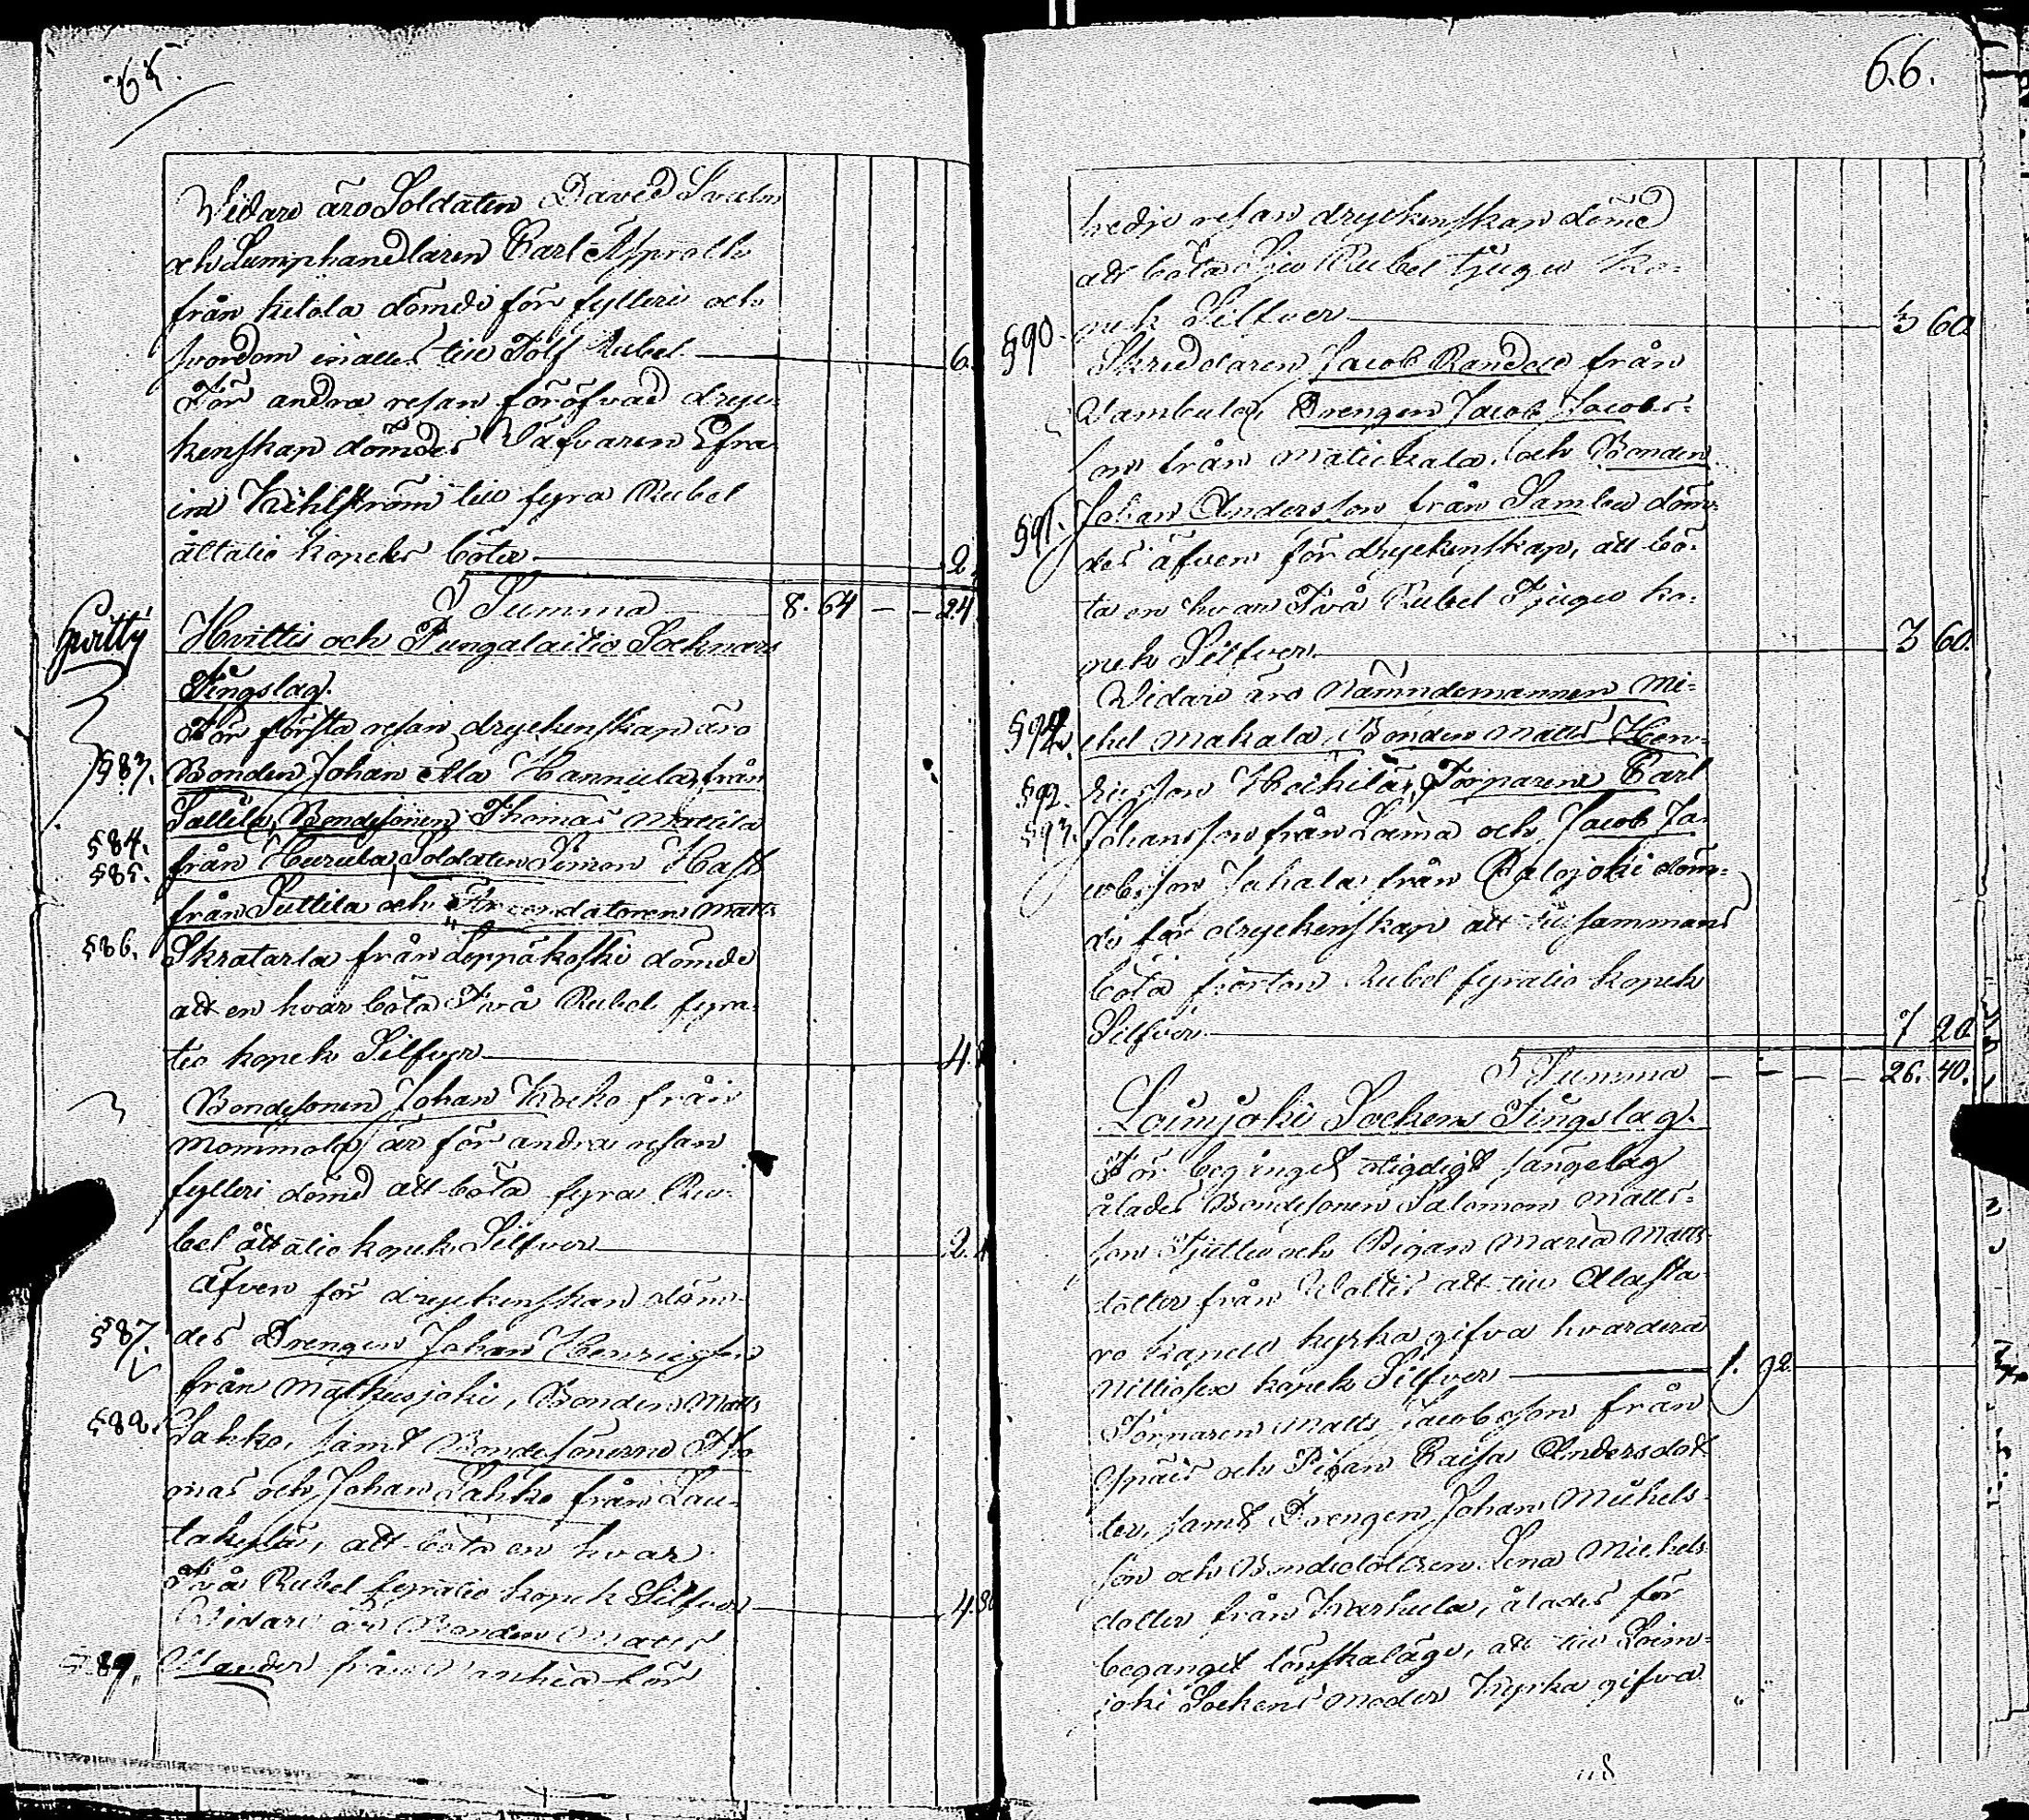 65.
Vidare äro Soldaten David
och Lumphandlaren Carl Asproth
från Ketola dömde för fylleri och
svordom in alles till Tolf Rubel 6.
För andra resan föröfvad dryc-
kenskap dömdes Väfvaren Efra-
im Kihlström till fyra Rubel
åttatio kopeks böter 2.
Summa 8. 64 — — 24
Huitty Hvittis och Pungalaitio Socknars
Tingslag.
För första resan dryckenskap äro
§83. Bonden Johan Ala Hannula, från
Sallila, Bondesonen Thomas Mattila
§84. från Hurula, Soldaten Simon Hast
§85. från Suttila och Arrendatoren Matts
§86. Skratarla från Leppäkoski dömde
att en hvar böta Två Rubel fyra-
tio kopek Silfver 4.
Bondesonen Johan Kocko från
Mommola är för andra resan
fylleri dömd att böta fyra Ru-
bel åttatio kopek Silfver 2.
Äfven för dryckenskap döm-
§87. des Drengen Johan Henricsson
från Matkusjoki, Bonden Matts
§88. Sahko, samt Bondesönerne Tho
mas och Johan Sahko från Lau-
takylä, att böta en hvar
Två Rubel fyratio kopek Silfver 4.80
Vidare är Bonden Matts
§89. från för
66.
tredje resan dryckenskap dömd
att böta Sju Rubel tjugu Ko-
pek Silfver 3 60
§90. Skräddaren Jacob Randell från
Vambula, Drengen Jacob Jacobs-
son från Matickala, och Bonden
§91. Johan Andersson från Sambu döm-
des äfven för dryckenskap, att bö-
ta en hvar Två Rubel Tjugu ko-
pek Silfver 3 60.
Vidare äro Nämndemannen Mi-
§94. chel Makala, Bonden Matts Hen-
§92. ricsson Heikilä, Torparene Carl
§93. Johansson från Loima och Jacob Ja-
cobsson Jakala från Palojoki döm-
de för dryckenskap att tillsammans
böta fjorton Rubel fyratio kopek
Silfver 7 20
Summa — — — — 26. 40.
Loimjoki Sockens Tingslag.
För begånget otidigt sängelag
ålades Bondesonen Salomon Matts-
son och Pigan Maria Matts-
dotter från Waltis att till Alasta-
ro kapell kyrka gifva hvardera
Nittiosex kopek Silfver 1. 92
Torparen Matts Jacobsson från
Ypäis och Pigan Caisa Andersdot-
ter, samt Drengen Johan Michels-
son och Bondedottren Lena Michels-
dotter från Karhula, ålades för
begånget lönskaläge, att till Loim-
joki Sockens Moder Kyrka gifva